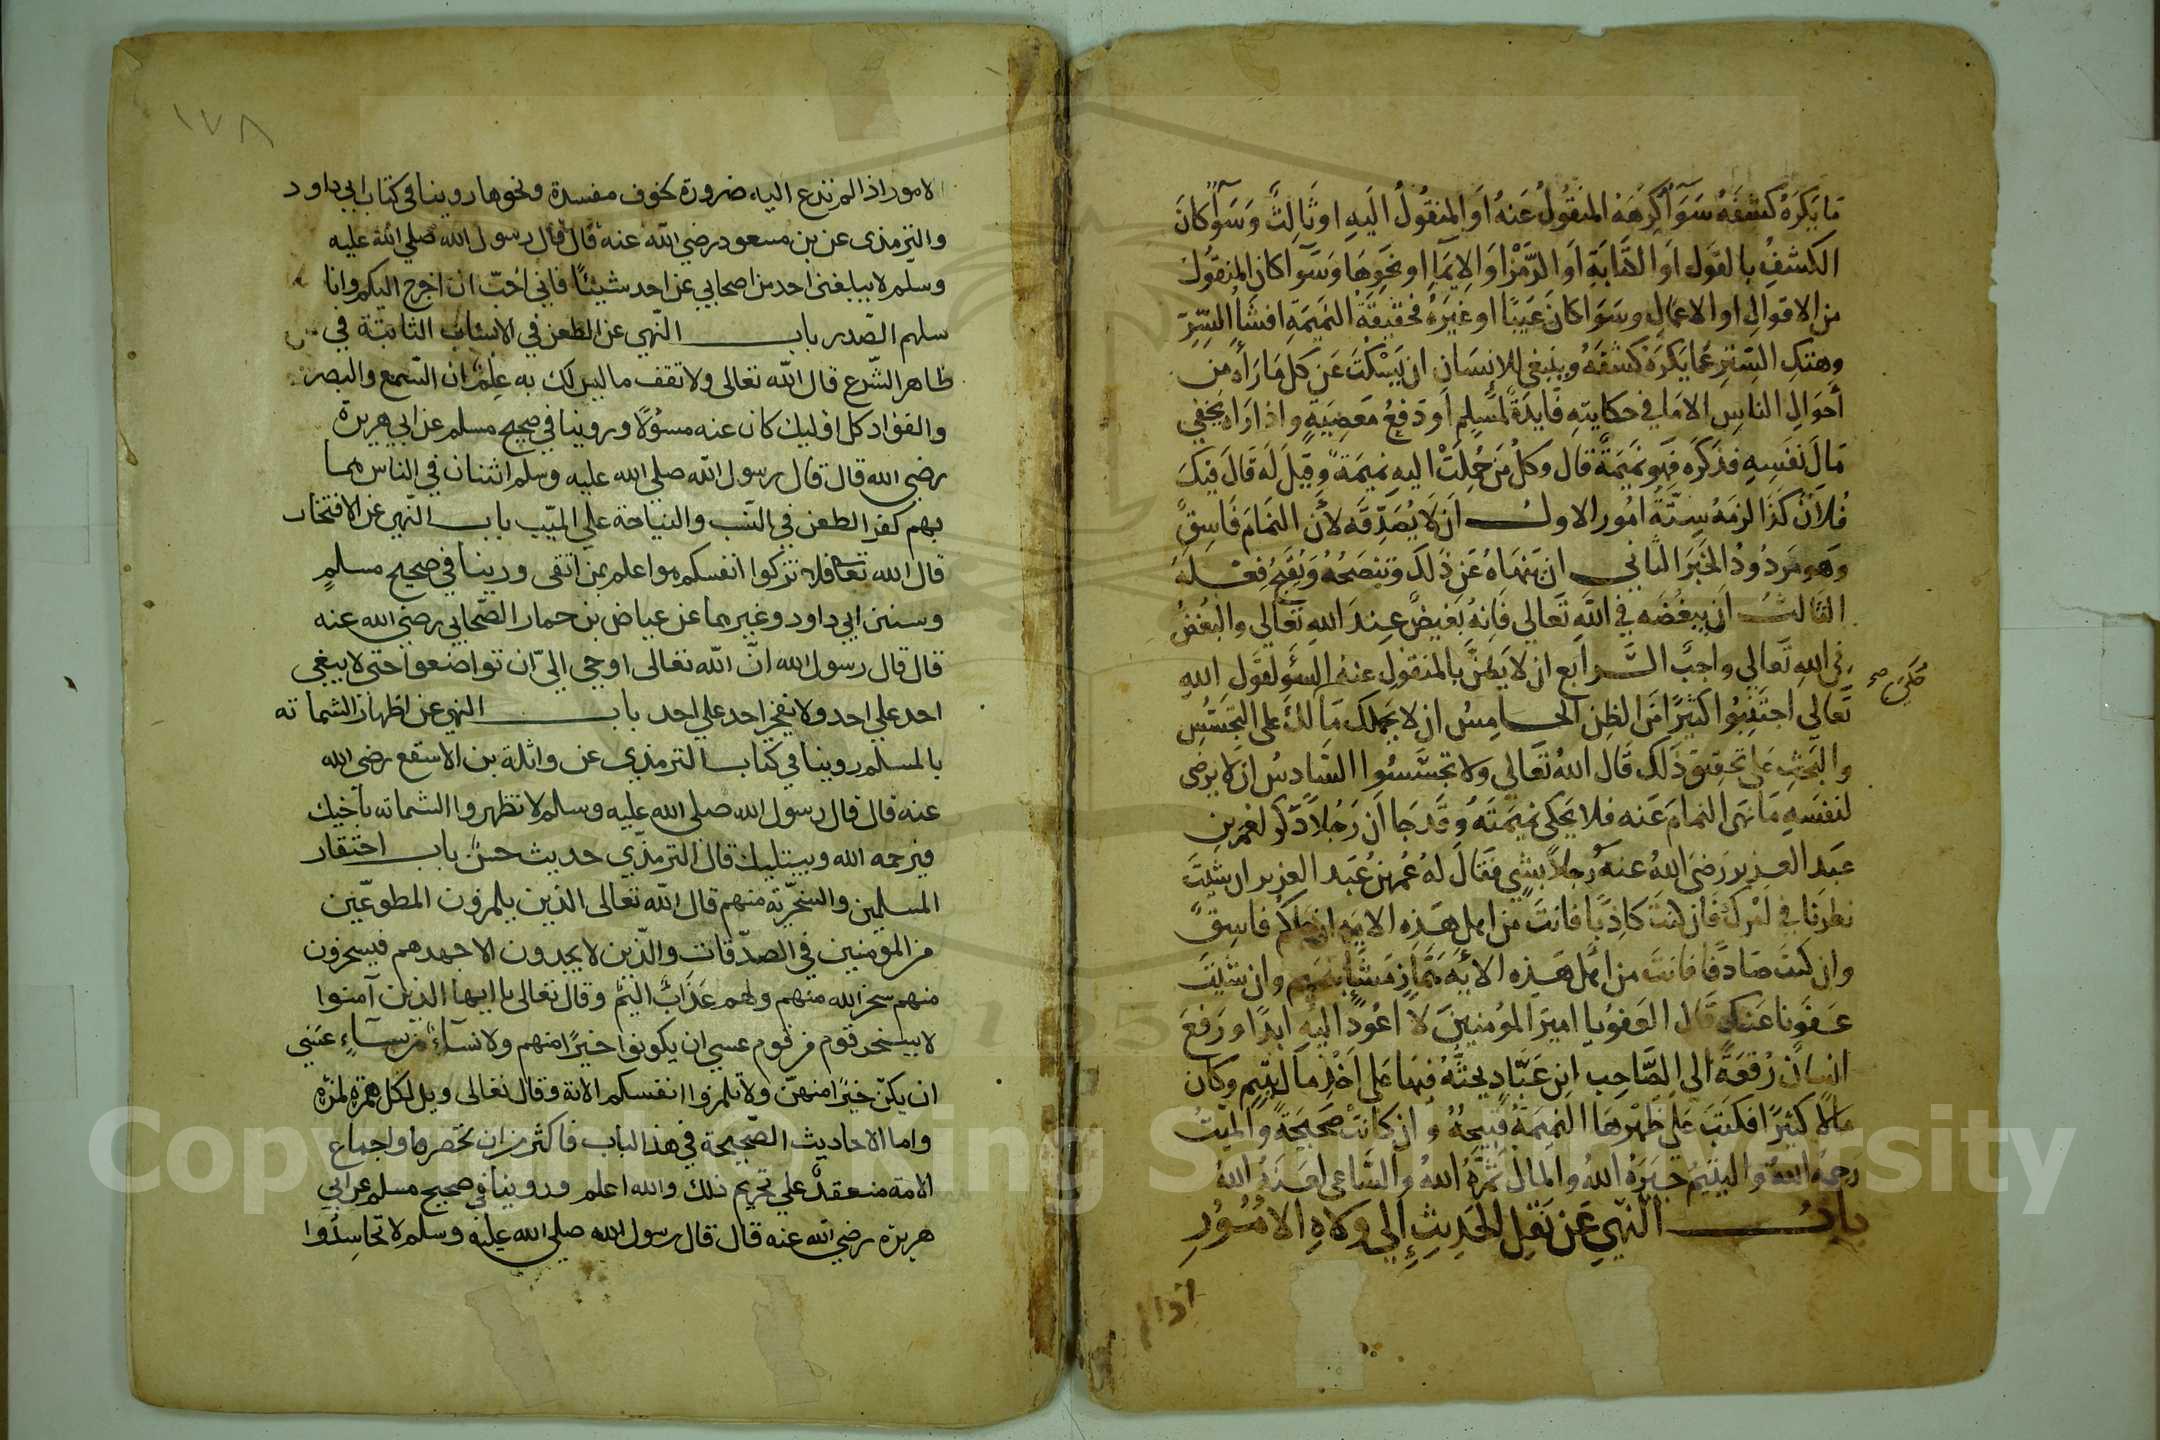 ما يكره كشفه سوآ كرهه المنقول عنه او المنقول اليه او ثالث وسوآ كان
الكشف بالقول او الكتابة او الرمز او الايمآ او نحوها وسوآ كان المنقول
من الاقوال او الاعمال وسوا كان عيبًا او غيره فحقيقة النميمة افشا السر
وهتك الستر عما يكره كشفه وينبغي للانسان ان يسكت عن كل ما رآه من
أحوال الناس الا ما في حكايته فايدة لمسلم او دفع معصية واذا راه يخفي
مال نفسه فذكره فهو نميمة قال وكل من حملت اليه نميمة وقيل له قال فيك
فلان كذا لزمه ستة امور الاول ان لا يصدقه لان النمام فاسق
وهو مردود الخبر الثاني ان ينهاه عن ذلك وينصحه ويقبح فعله
الثالث ان يبغضه في الله تعالي فانه بغيض عند الله تعالي والبغض
في الله تعالي واجب الرابع ان لا يظن بالمنقول عنه السؤ لقول الله
تعالي اجتنبوا كثيرًا من الظن الخامس ان لا يحملك ما لك على التجسس
حكي صح
والبحث على تحقيق ذلك قال الله تعالي ولا تجسسوا السادس ان لا يرضى
لنفسه ما نهى النمام عنه فلا يحكى نميمته وقد جا ان رجلاً ذكر لعمر بن
عبد العزيز رضي الله عنه رجلا بشي فقال له عمر بن عبد العزيز ان شيت
نظرنا في امرك فان كنت كاذبًا فانت من اهل هذه الايه ان جاكم فاسق
وان كنت صادقًا فانت من اهل هذه الايه هماز مشآ بنميم وان شيت
عفونا عنك قال العفو يا امير المؤمنين لا اعود اليه ابدًا ورفع
انسان رقعة الى الصاحب ابن عباد يحثه فيها على اخذ مال يتيم وكان
مالا كثيرًا فكتب على ظهرها النميمة قبيحة وان كانت صحيحة والميت
رحمه الله واليتيم جبره الله والمال ثمره الله والساعي لعنه الله
باب النهي عن نقل الحديث إلي ولاه الامور
اذا
١٧٨
الامور اذا لم تدع اليه ضرورة لخوف مفسدة ونحوها روينا في كتاب ابي داود
والترمذى عن بن مسعود رضي الله عنه قال قال رسول الله صلي الله عليه
وسلم لا يبلغني احد من اصحابي عن احد شيئًا فاني احبّ ان اخرج اليكم وانا
سليم الصّدر باب النّهي عن الطعن في الانساب الثابتة في
ظاهر الشّرع قال الله تعالى ولا تقف ما ليس لك به علم ان السّمع والبصر
والفؤاد كل اوليك كان عنه مسؤلًا وروينا في صحيح مسلم عن ابي هريرة
رضي الله قال قال رسول الله صلي الله عليه وسلم اثنتان في الناس هما
بهم كفر الطعن في النسب والنياحة علي الميّب باب النّهي عن الافتخار
قال الله تعا فلا تزكوا انفسكم هو اعلم بمن اتقى وروينا في صحيح مسلم
وسنن ابي داود وغيرهما عن عياض بن حمار الصّحابي رضي الله عنه
قال قال رسول الله انّ الله تعالى اوحي اليّ ان تواضعوا حتى لا يبغي
احد علي احد ولا يفخر احد علي احد باب النهي عن اظهار الشماته
بالمسلم روينا في كتاب الترمذي عن واثلة بن الاسقع رضي الله
عنه قال قال رسول الله صلي الله عليه وسلم لا تظهروا الشماته بأخيك
فيرحمه الله ويبتليك قال الترمذّي حديث حسن باب احتقار
المسلمين والسخرّية منهم قال الله تعالى الذين يلمزون المطوعّين
من المؤمنين في الصدّقات والّذين لا يجدون الا جهدهم فيسخرون
منهم سخر الله منهم ولهم عذابٌ اليم وقال تعالى يا ايها الذين آمنوا
لا يسخر قوم من قوم عسي ان يكونوا خيرًا منهم ولا نسآء من نسآء عسي
ان يكنّ خيرًا منهنّ ولا تلمزوا انفسكم الاية وقال تعالى ويل لكل همزة لمزة
واما الاحاديث الصّحيحة في هذا الباب فاكثر من ان تحصر واجماع
الامة منعقدٌ علي تحريم ذلك والله اعلم وروينا في صحيح مسلم عن ابي
هريرة رضي الله عنه قال قال رسول الله صلي الله عليه وسلم لا تحاسدوا
Copyright © King Saud University